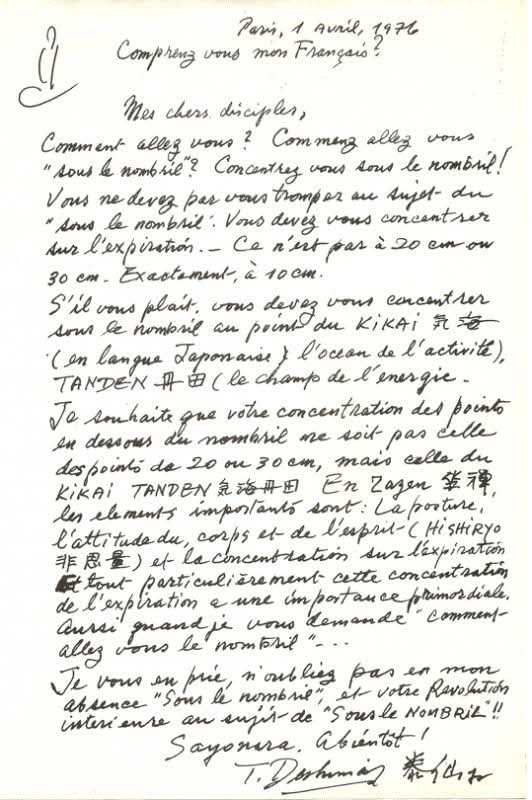 Paris, 1 Avril, 1976
Comprenz vous mon Français?
Mes chers disciples,
Comment allez vous? Commenz allez vous
"sous le nombril"? Concentrez vous sous le nombril!
Vous ne devez pas vous tromper au sujet du
"sous le nombril". Vous devez vous concentrer
sur l'expiration. — Ce n'est pas à 20 cm ou
30 cm. Exactement, à 10 cm.
S'il vous plait, vous devez vous concentrer
sous le nombril au point du KiKAi 気海
(en langue Japonaise) l'ocean de l'activité),
TANDEN 丹田 (le champ de l'energie.
Je souhaite que votre concentration des points
en dessous du nombril ne soit pas celle
des points de 20 ou 30 cm, mais celle du
KiKAi TANDEN 気海丹田 En Zazen 禅,
les elements importants sont: La posture,
l'attitude du, corps et de l'esprit (HiSHiRYO
非思量) et la concentration sur l'expiration
Et tout particulièrement cette concentration
de l'expiration a une importance primordiale.
Aussi quand je vous demande "comment-
allez vous le nombril"---
Je vous en prie, n'oubliez pas en mon
absence "Sous le nombril", et votre Revolution
interieure au sujet de "Sous le NOMBRiL"!!
Sayonara. Abientôt!
T. Deshimaru 泰仙